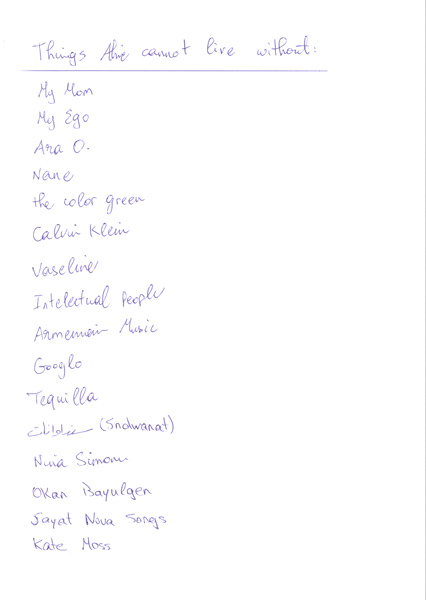 Things Alne cannot live without:
My Mom
My Ego
Ara O.
Nane
the color green
Calvin Klein
Vaseline
Intelectual People
Armenian Music
Google
Tequilla
سندوانات (Sndwanat)
Nina Simone
Okan Bayulgen
Sayat Nova Songs
Kate Moss